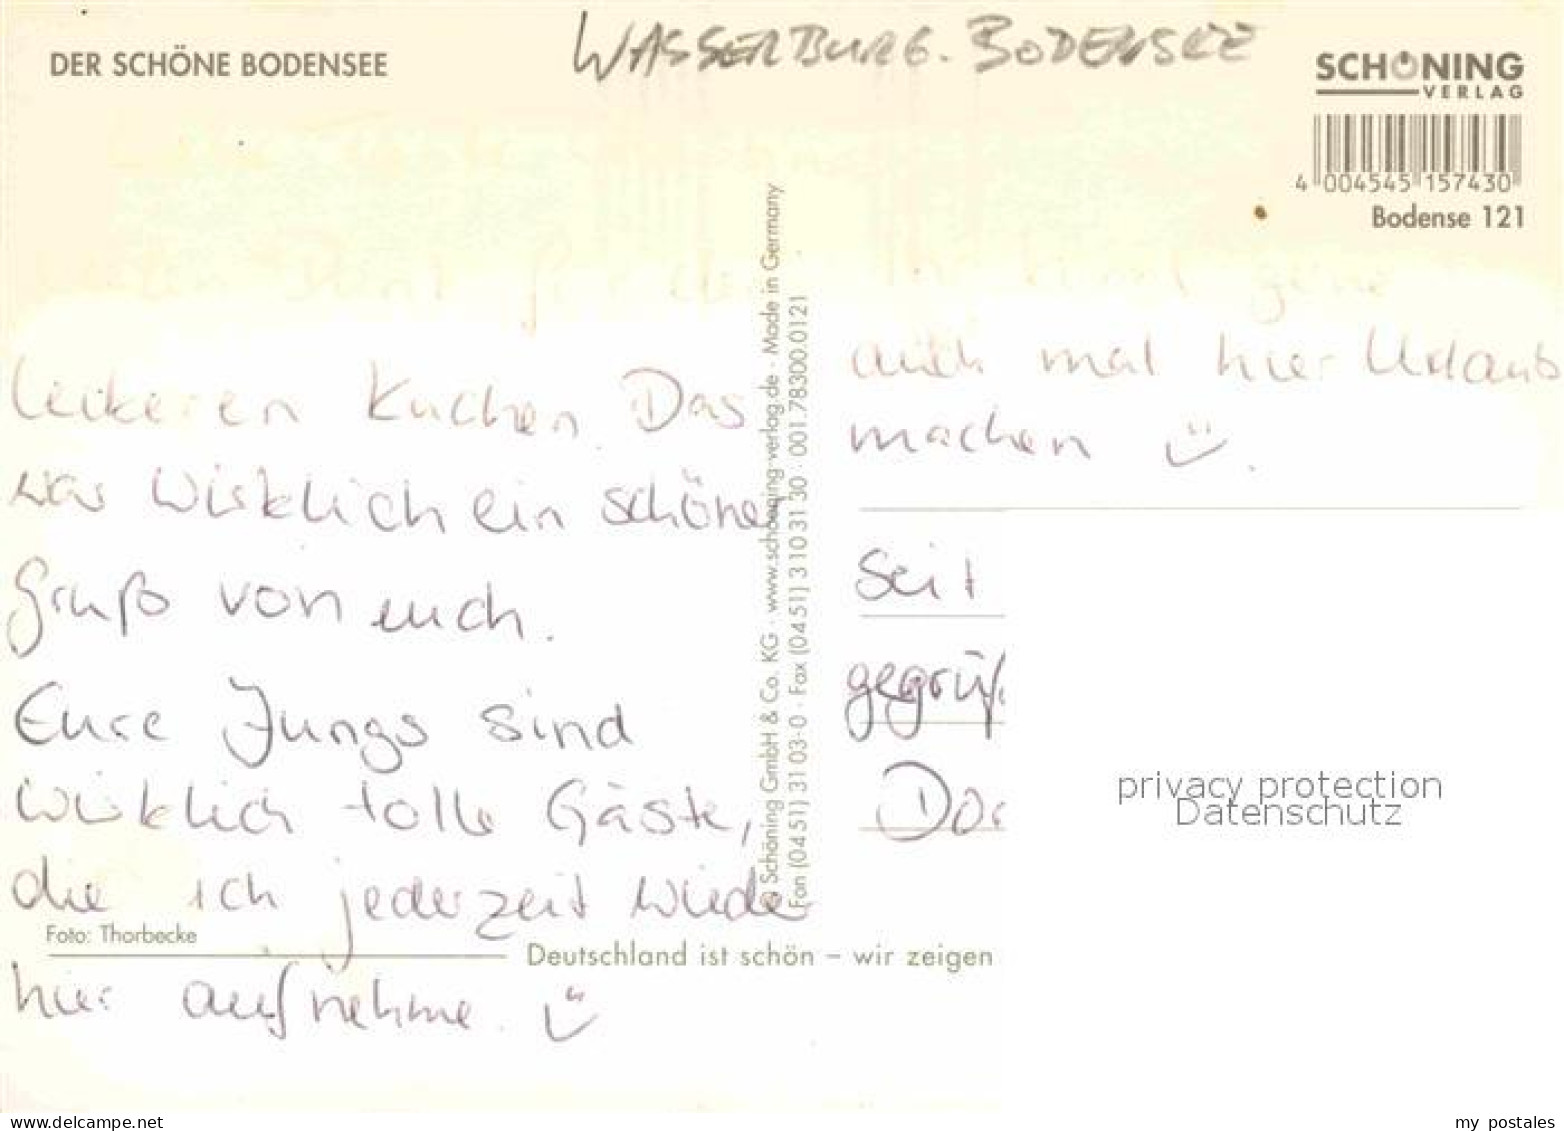 WASSERBURG. BODENSEE
DER SCHÖNE BODENSEE
SCHÖNING
VERLAG
4 004545 157430
Bodense 121
Dank für de
leckeren Kuchen. Das
war wirklich ein schöner
Gruß von euch.
Eure Jungs sind
wirklich tolle Gäste,
die ich jederzeit wieder
hier aufnehme.
Foto: Thorbecke
Deutschland ist schön – wir zeigen
© Schöning GmbH & Co. KG · www.schoening-verlag.de · Made in Germany
Fon (0451) 31 03-0 · Fax (0451) 3 10 31 30 · 001.78300.0121
gerne
auch mal hier Urlaub
machen
Seid
gegrüß
privacy protection
Datenschutz
www.delcampe.net
my_postales